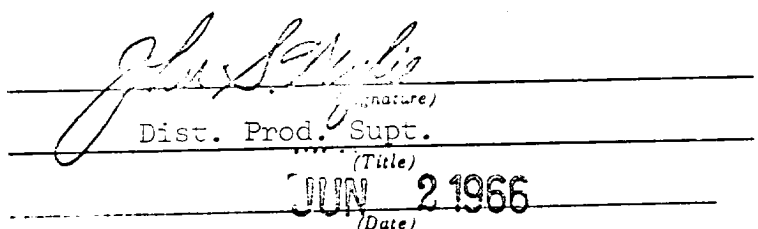 John S.
(Signature)
Dist. Prod. Supt.
(Title)
JUN 2 1966
(Date)